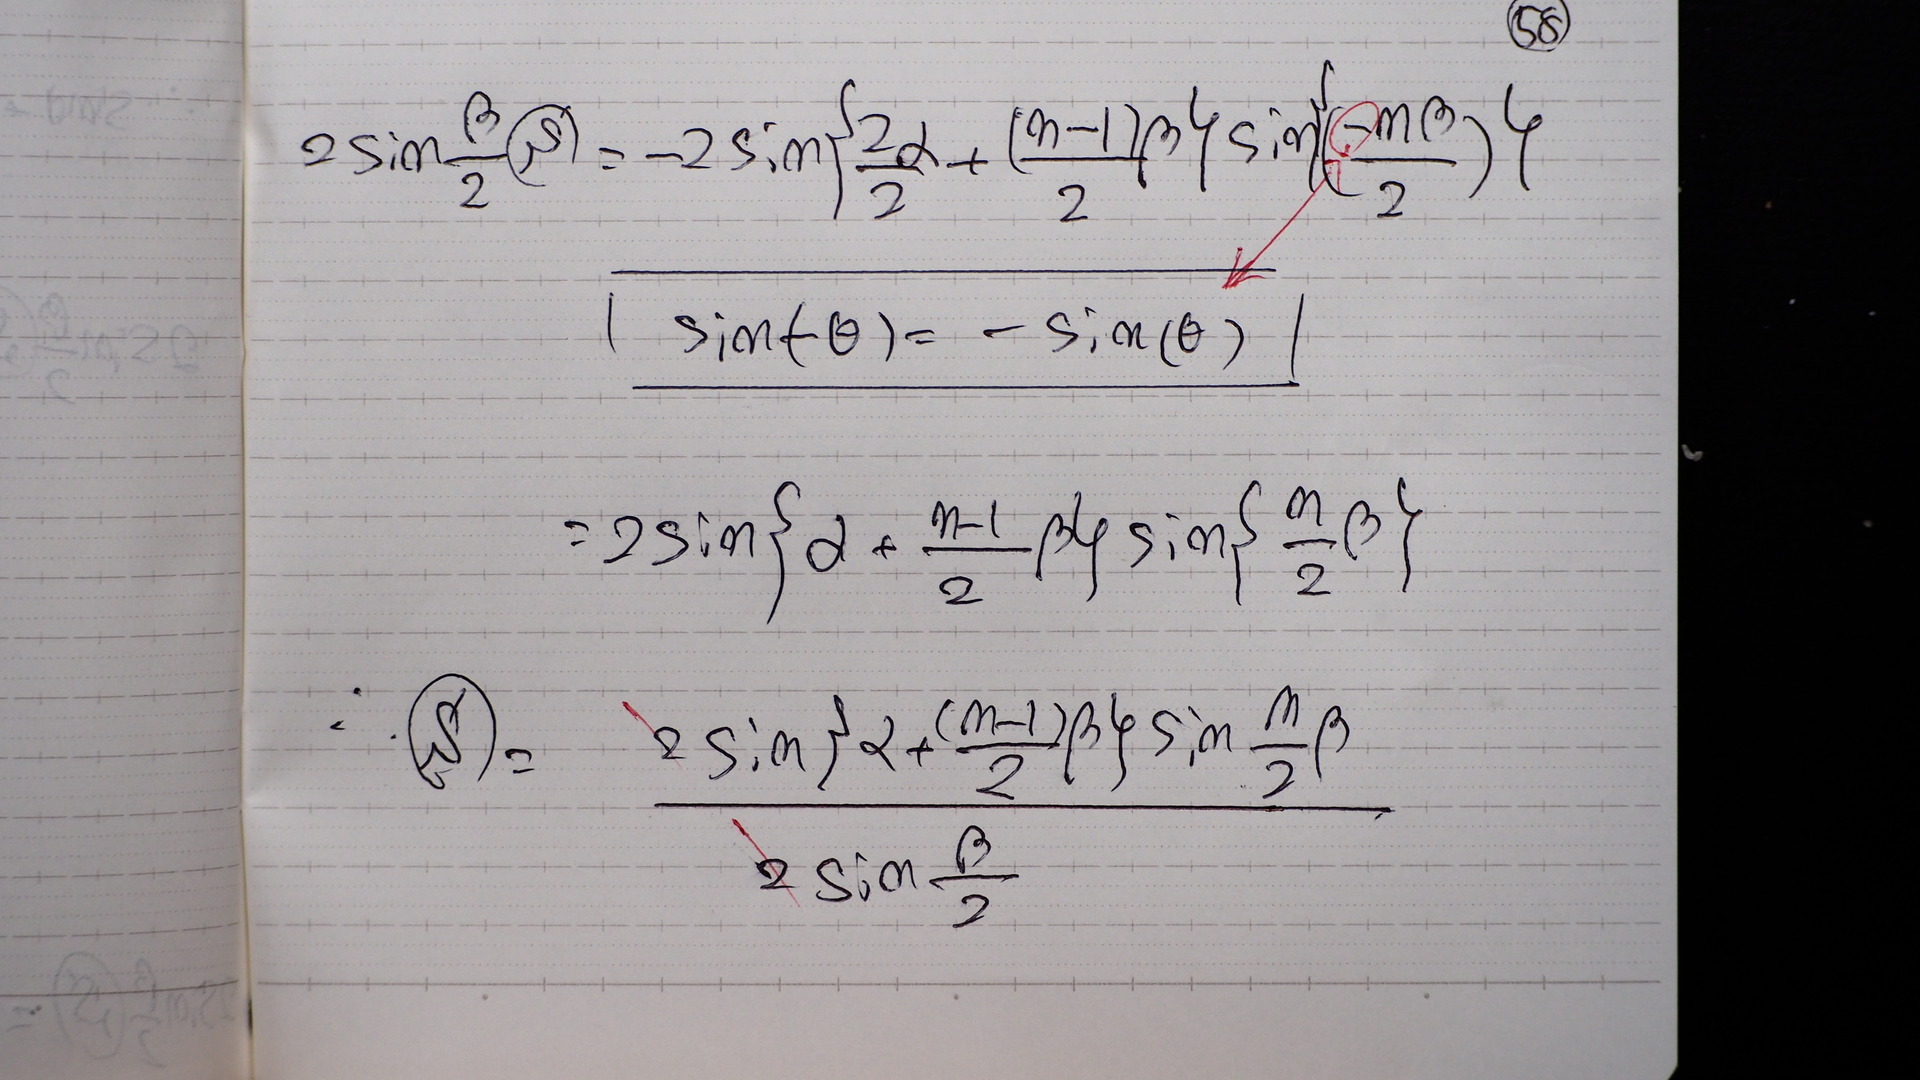 58
2 sin β/2 (S) = -2 sin{2α/2 + (n-1)β/2} sin{(-nβ/2)}
sin(-θ) = - sin(θ)
= 2 sin{α + n-1/2 β} sin{n/2 β}
∴ (S) = 2 sin{α + (n-1)/2 β} sin n/2 β
2 sin β/2